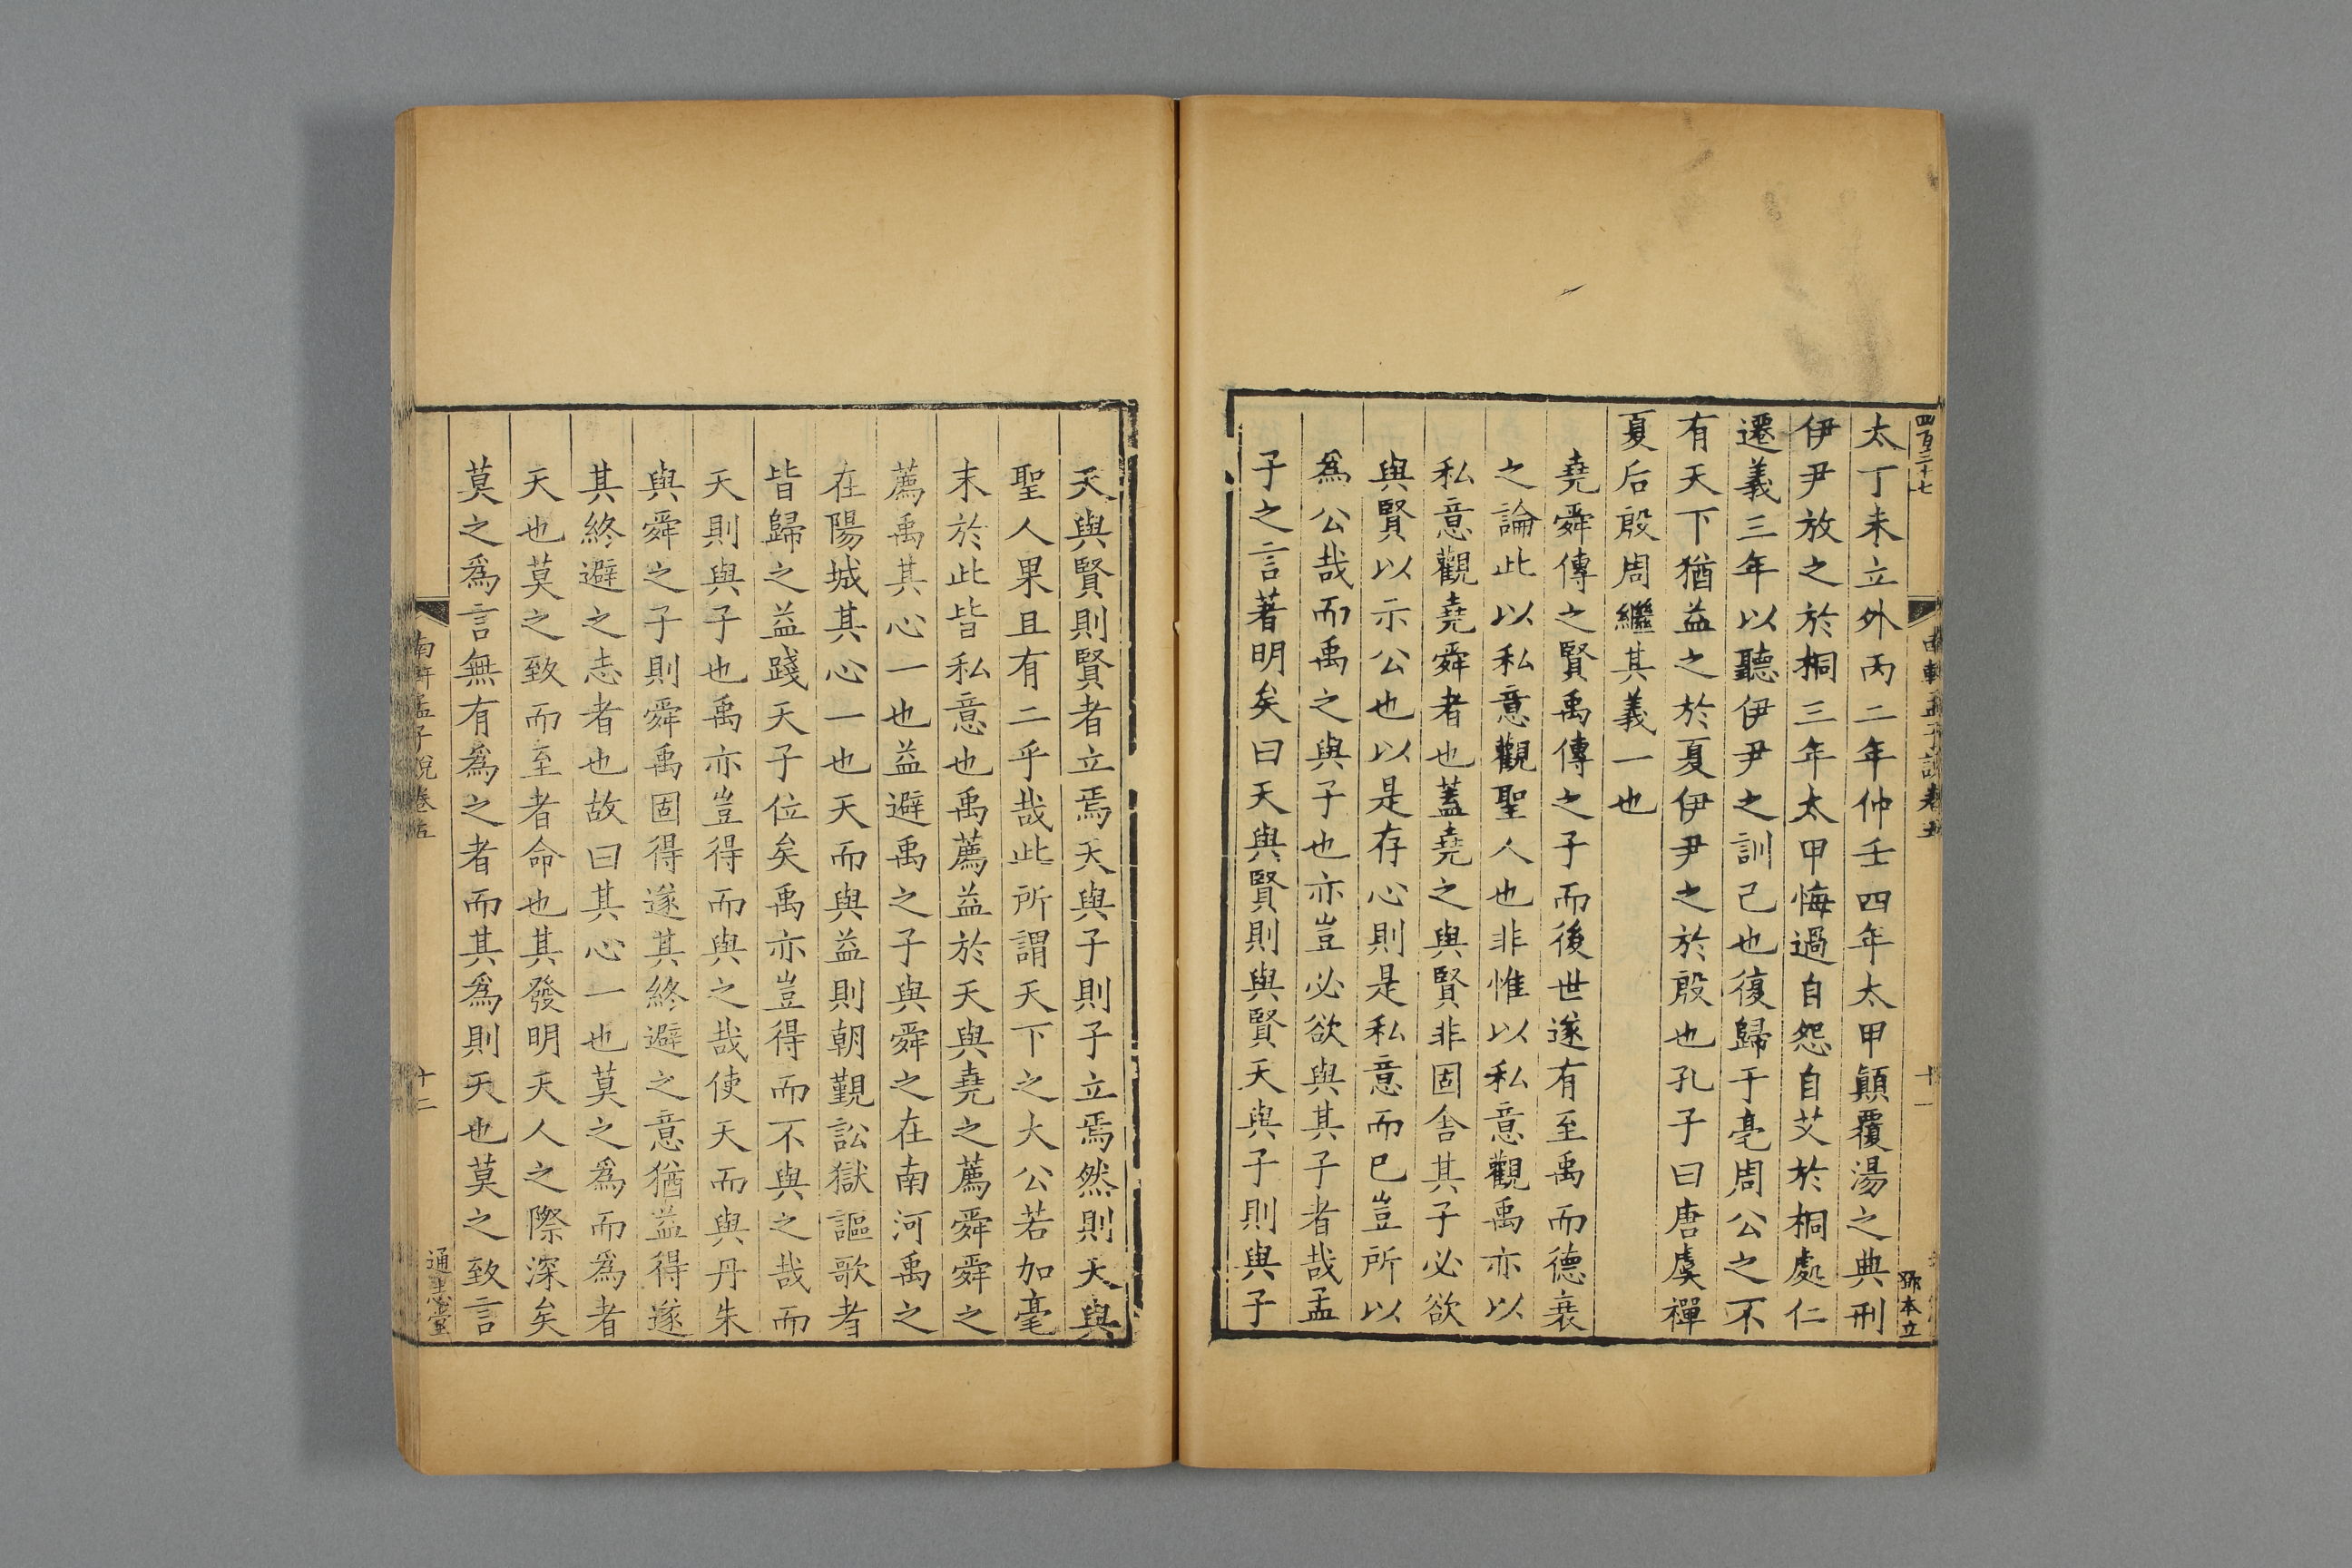 四百三十七
南軒孟子說卷五
十一
鄧本立
太丁未立外丙二年仲壬四年太甲顛覆湯之典刑
伊尹放之於桐三年太甲悔過自怨自艾於桐處仁
遷義三年以聽伊尹之訓己也復歸于亳周公之不
有天下猶益之於夏伊尹之於殷也孔子曰唐虞禪
夏后殷周繼其義一也
堯舜傳之賢禹傳之子而後世遂有至禹而德衰
之論此以私意觀聖人也非惟以私意觀禹亦以
私意觀堯舜者也蓋堯之與賢非固舍其子必欲
與賢以示公也以是存心則是私意而已豈所以
爲公哉而禹之與子也亦豈必欲與其子者哉孟
子之言著明矣曰天與賢則與賢天與子則與子
天與賢則賢者立焉天與子則子立焉然則天與
聖人果且有二乎哉此所謂天下之大公若加毫
末於此皆私意也禹薦益於天與堯之薦舜舜之
薦禹其心一也益避禹之子與舜之在南河禹之
在陽城其心一也天而與益則朝覲訟獄謳歌者
皆歸之益踐天子位矣禹亦豈得而不與之哉而
天則與子也禹亦豈得而與之哉使天而與丹朱
與舜之子則舜禹固得遂其終避之意猶益得遂
其終避之志者也故曰其心一也莫之爲而爲者
天也莫之致而至者命也其發明天人之際深矣
莫之爲言無有爲之者而其爲則天也莫之致言
南軒孟子說卷五
十二
通志堂